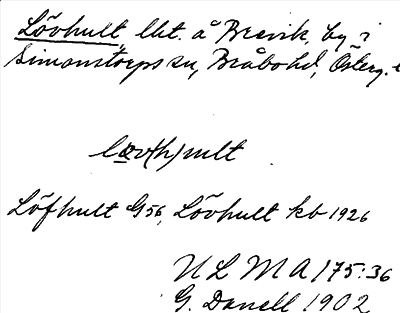 Lövhult lht. å Brevik, by i
Simonstorps sn, Bråbo hd, Österg. l
lœv(h)ult
Löfhult G56, Lövhult kb 1926
ULMA 175:36
G. Danell 1902